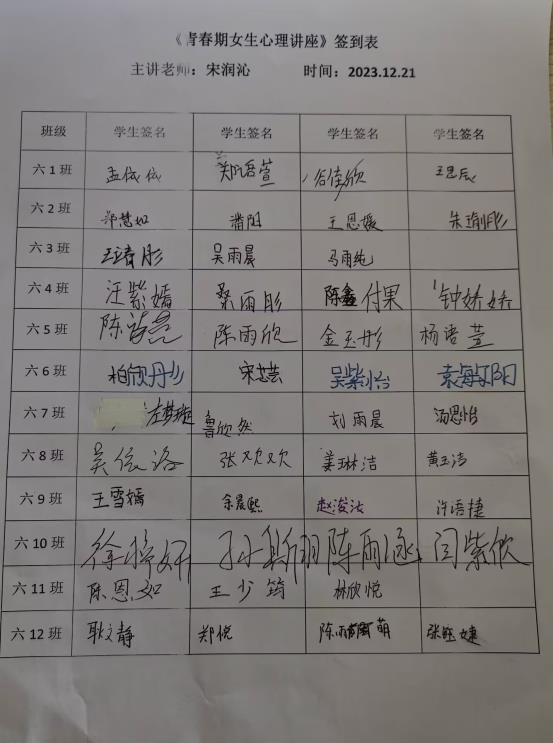 《青春期女生心理讲座》签到表
主讲老师：宋润沁 时间：2023.12.21
班级 学生签名 学生签名 学生签名 学生签名
六1班 孟依依 谷佳欣 王思辰
六2班 郑慧如 潘阳 王恩媛
六3班 吴雨晨 马雨纯
六4班 汪紫嫣 桑雨彤 陈鑫 付果 钟娇娇
六5班 陈雨欣 金玉彤 杨语萱
六6班 宋芯芸 吴紫怡
六7班 鲁欣然 刘雨晨 汤思怡
六8班 吴依洛 张欢欢 姜琳洁 黄玉洁
六9班 王雪嫣 余晨熙 许语捷
六10班 徐婷妍 陈雨涵 闫紫欣
六11班 陈恩如 王少筠 林欣悦
六12班 耿文静 郑悦 萌